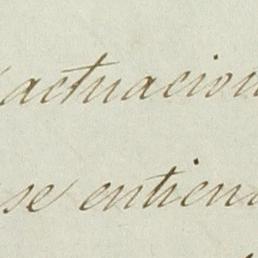 actuacion
se entien